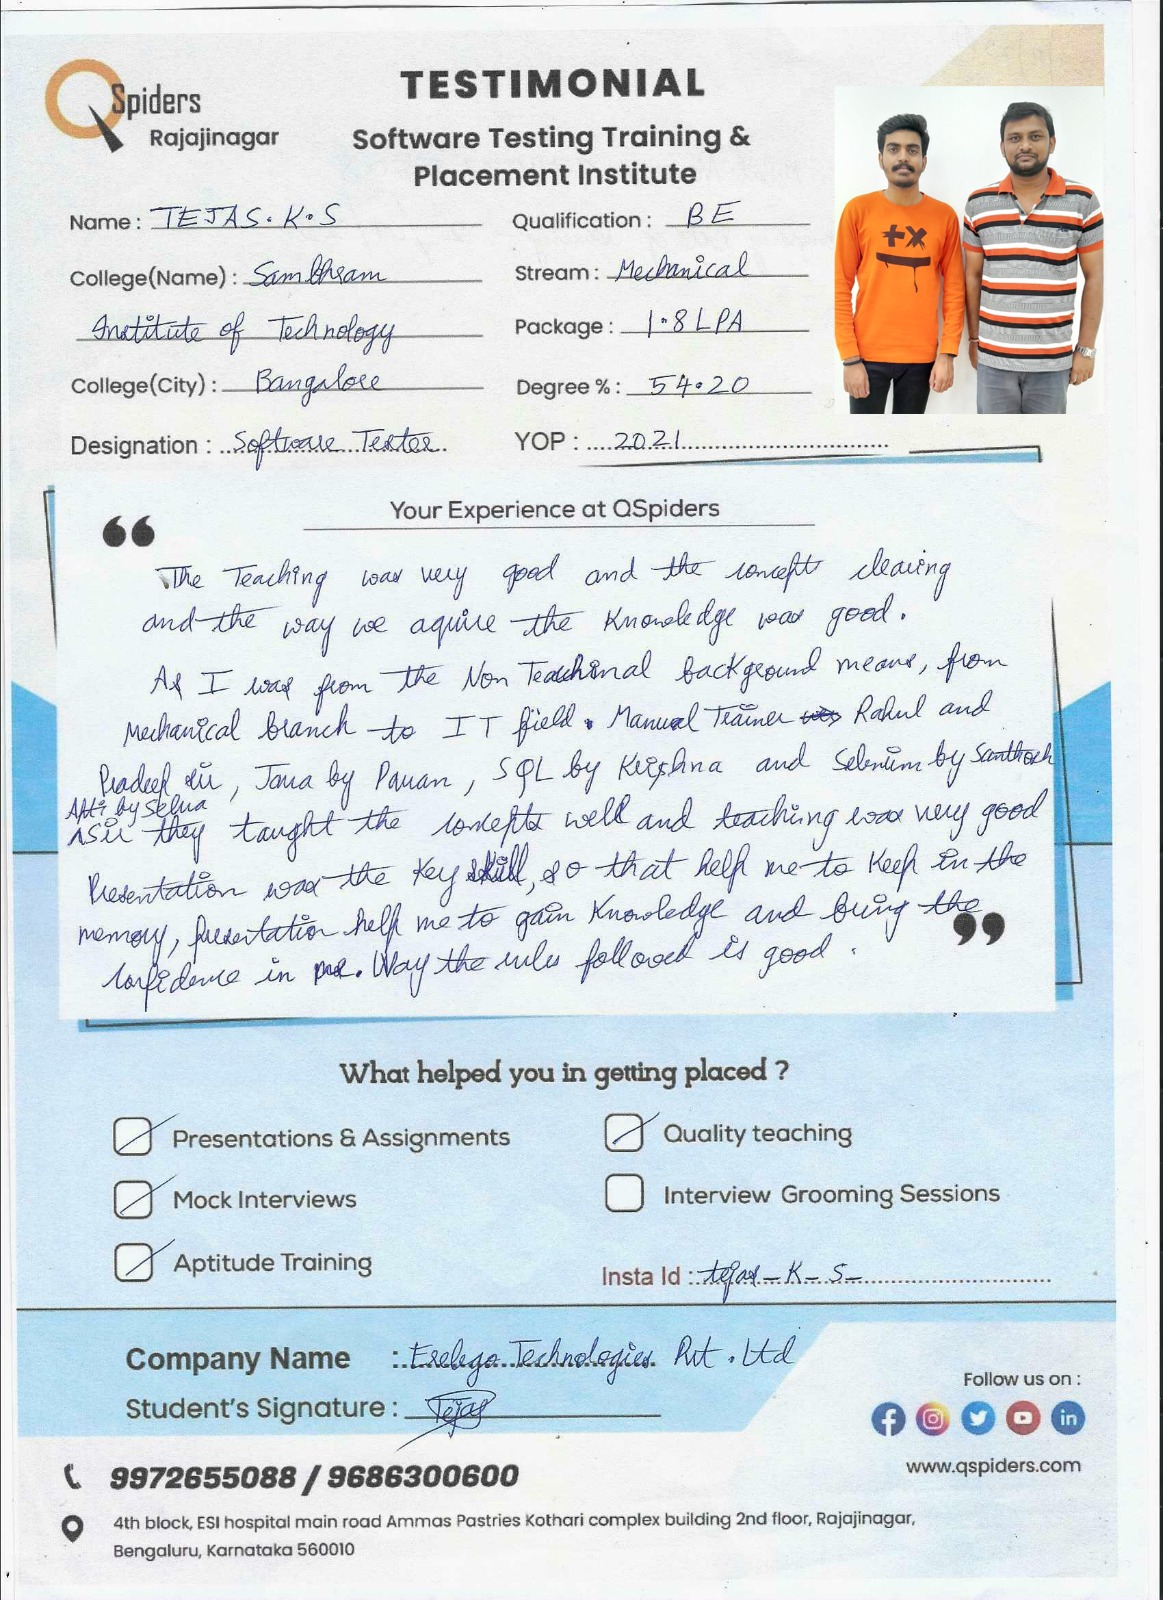 QSpiders
Rajajinagar
TESTIMONIAL
Software Testing Training &
Placement Institute
Name : TEJAS.K.S
Qualification : BE
College(Name) : Sambhram
Stream : Mechanical
Institute of Technology
Package : 1.8 LPA
College(City) : Bangalore
Degree % : 54.20
Designation : Software Tester
YOP : 2021
Your Experience at QSpiders
“
The Teaching was very good and the concepts clearing
and the way we aquire the Knowledge was good.
As I was from the Non Teachinal background means, from
Mechanical branch to IT field. Manual Trainer Rahul and
Pradeep sir, Java by Pavan, SQL by Krishna and Selenium by Santhosh
Apti by Selva
Sir they taught the concepts well and teaching was very good
Presentation was the Key skill, so that help me to Keep in the
memory, presentation help me to gain Knowledge and bring the
confidence in me. Way the rules followed is good.
”
What helped you in getting placed ?
Presentations & Assignments
Quality teaching
Mock Interviews
Interview Grooming Sessions
Aptitude Training
Insta Id : tejas_K_S_
Company Name : Exelego Technologies Pvt. Ltd
Student's Signature : Tejas
Follow us on :
www.qspiders.com
9972655088 / 9686300600
4th block, ESI hospital main road Ammas Pastries Kothari complex building 2nd floor, Rajajinagar,
Bengaluru, Karnataka 560010